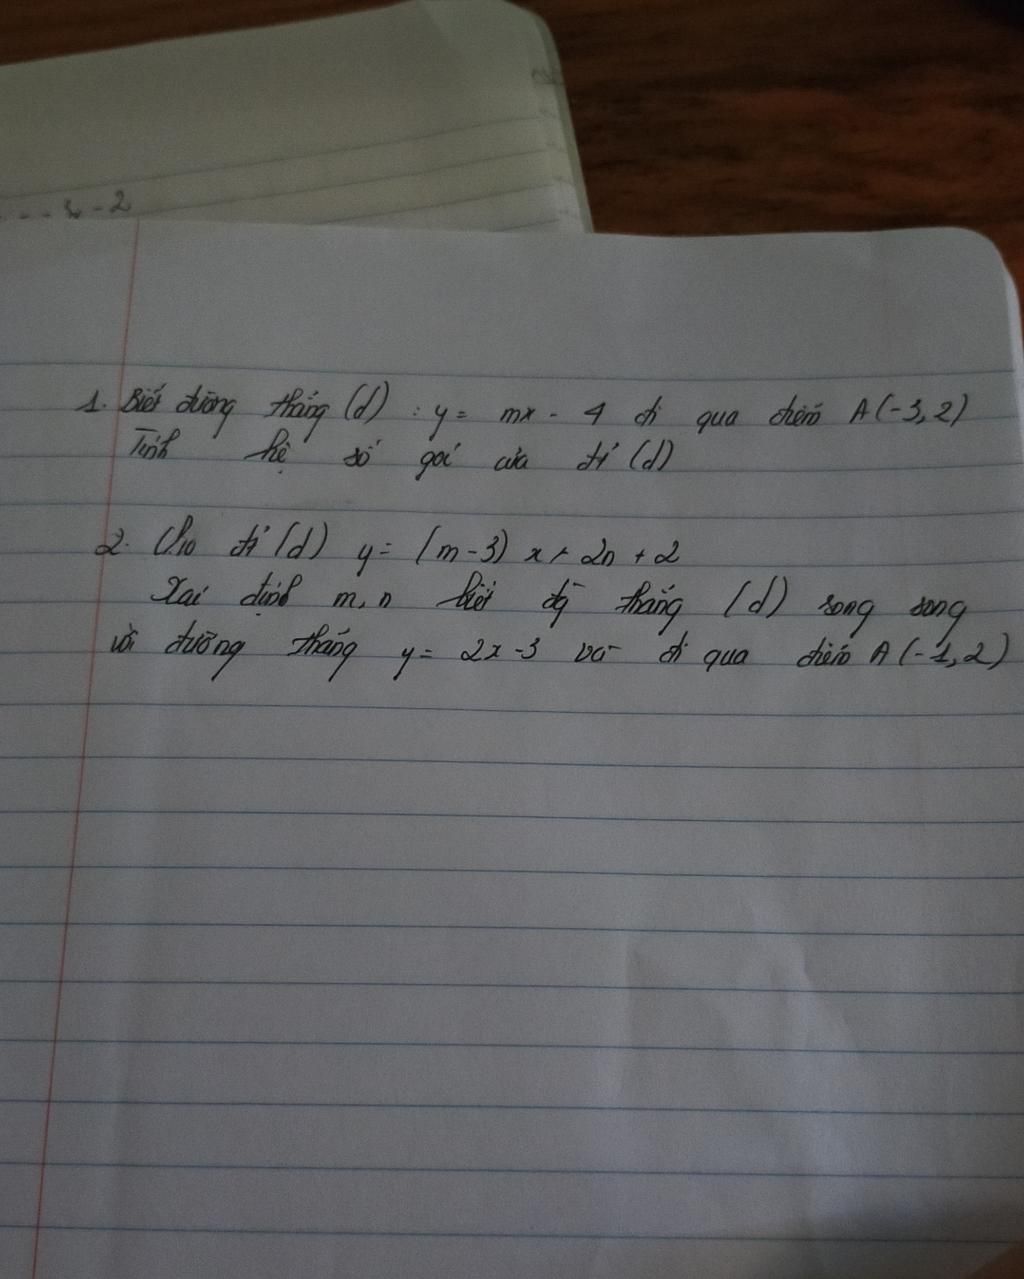 - 2
1. Biết đường thẳng (d) : y = mx - 4 đi qua điểm A(-3,2)
Tính hệ số góc của đt (d)
2. Cho đt (d) y = (m-3) x + 2n + 2
Xác định m, n biết đg thẳng (d) song song
với đường thẳng y = 2x -3 và đi qua điểm A(-1,2)